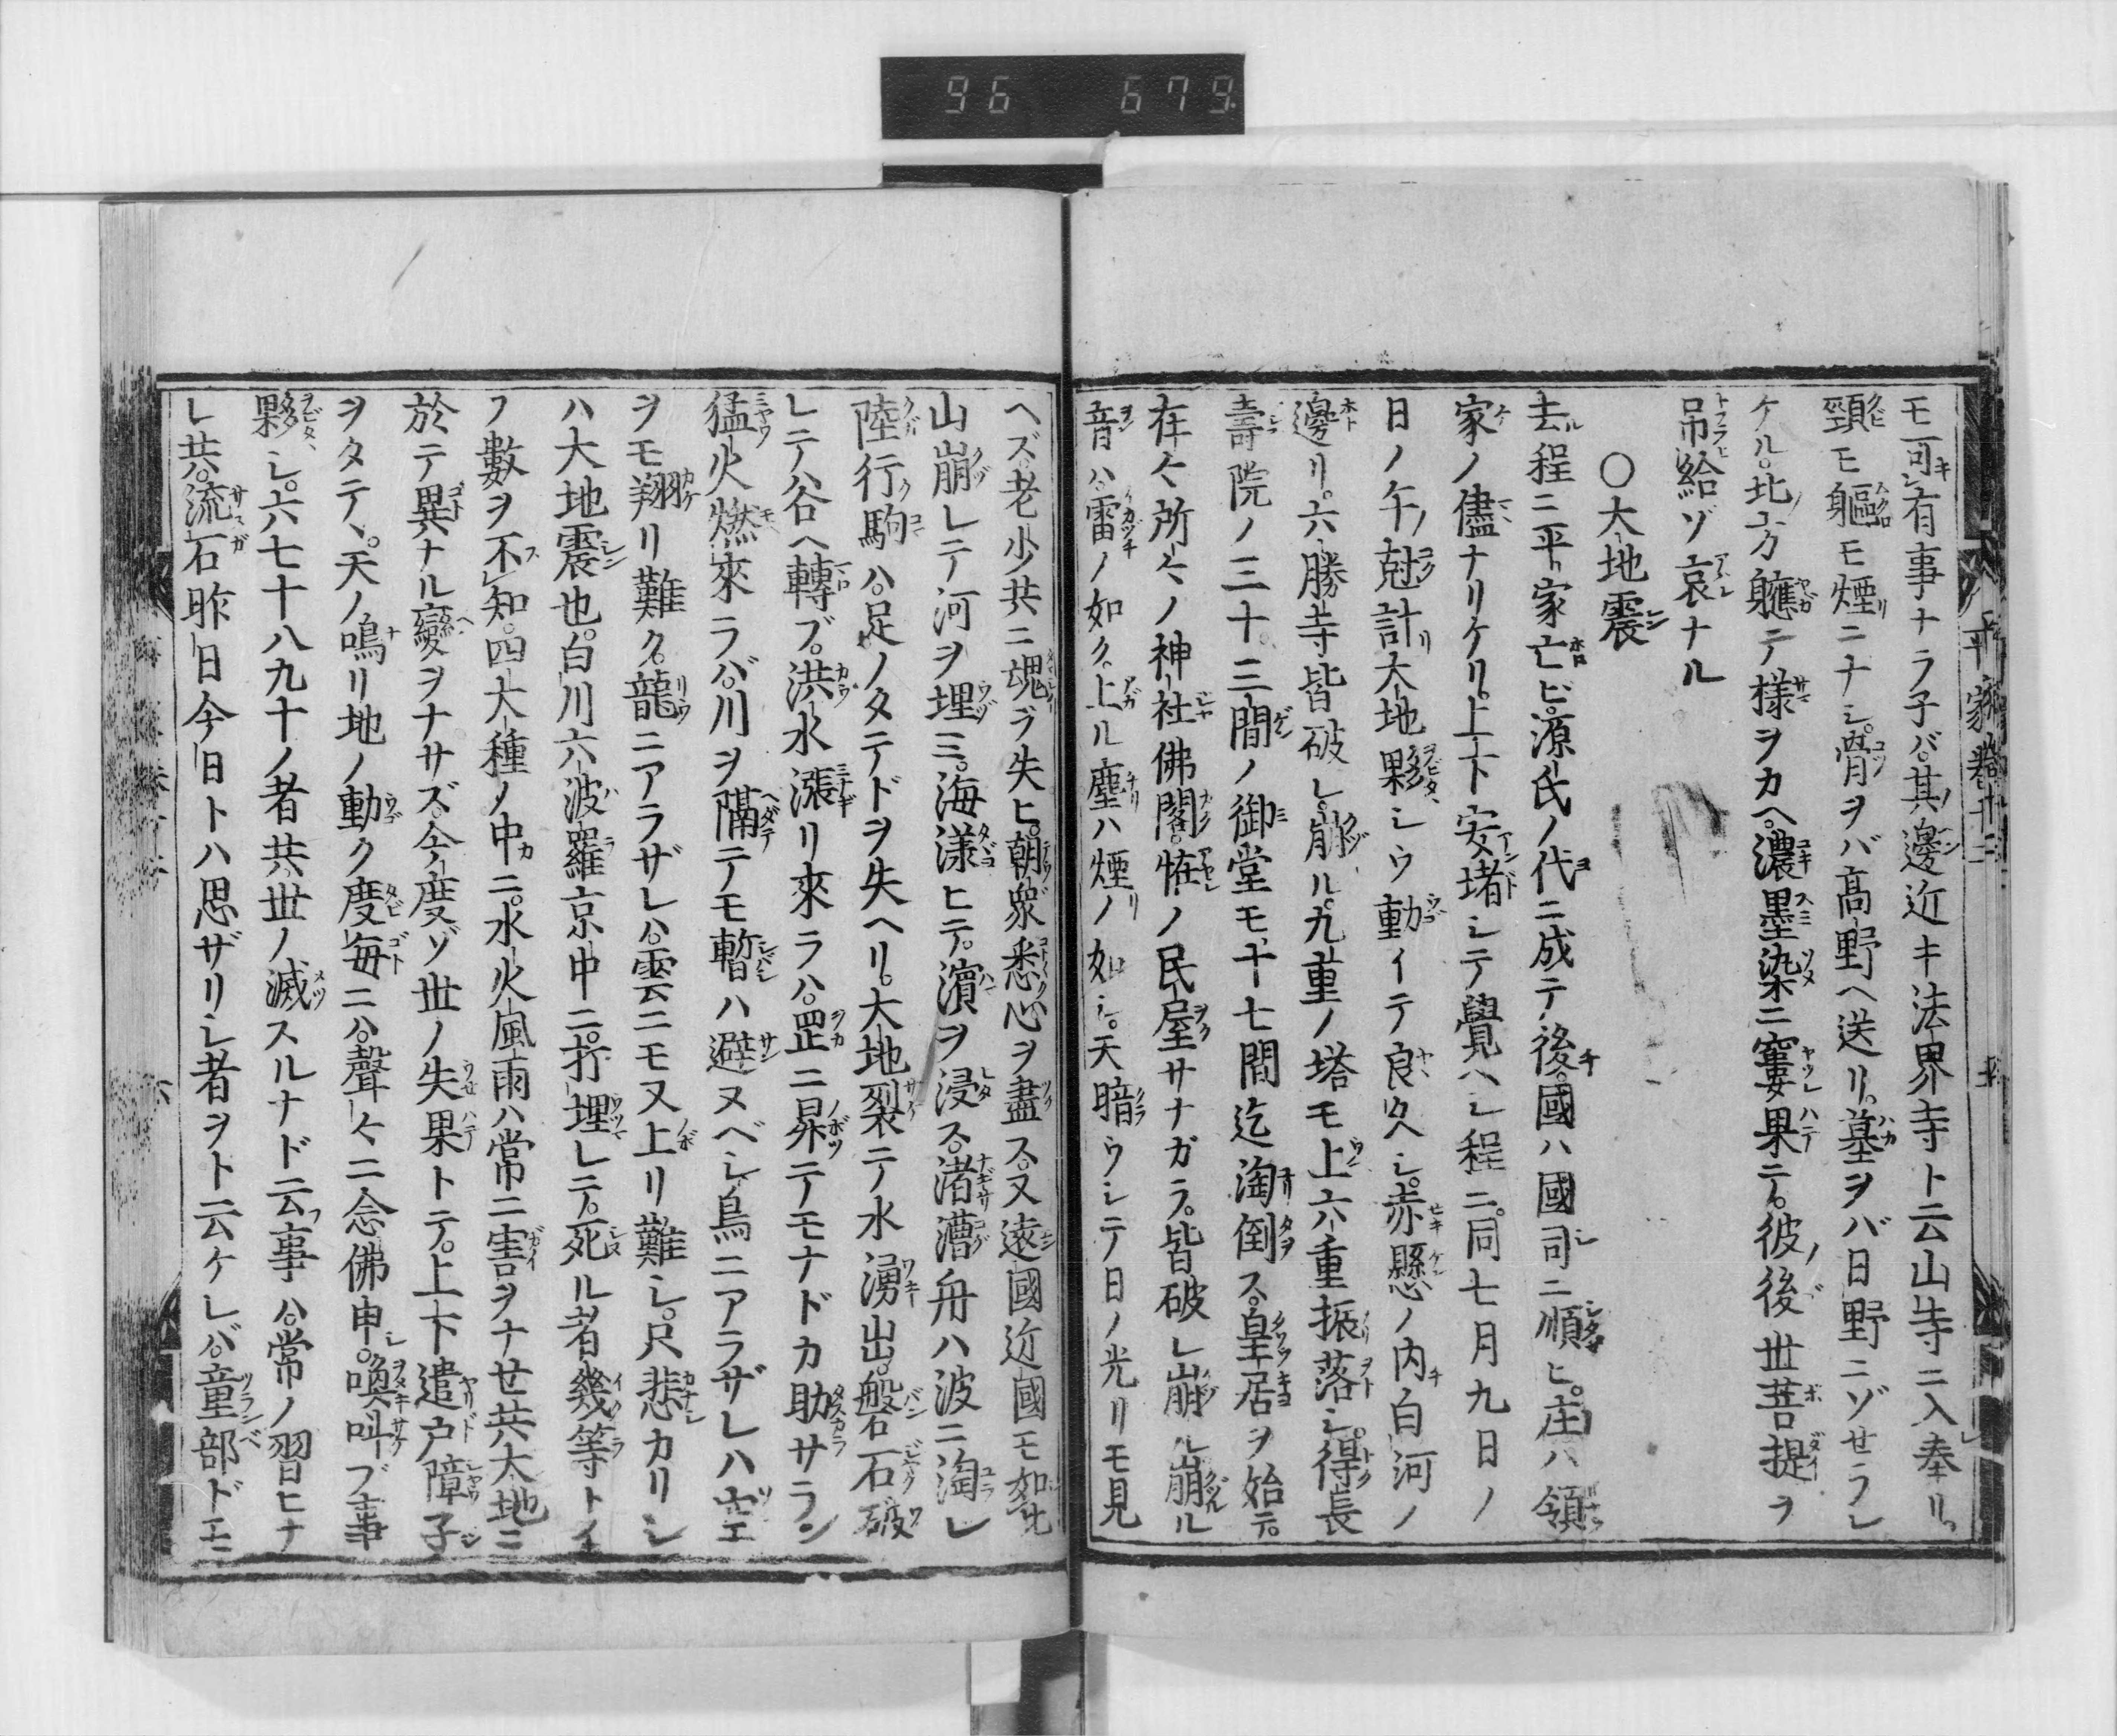 96 679
モ可有事ナラ子バ。其邊近キ法界寺ト云山寺ニ入奉リ。
頸モ軀モ煙ニナシ。骨ヲバ髙野ヘ送リ。墓ヲバ日野ニゾせラレ
ケル。北ノ方軈テ様ヲカヘ。濃墨染ニ窶果テ。彼後世菩提ヲ
吊給ゾ哀ナル
○大地震
去程ニ平家亡ビ。源氏ノ代ニ成テ後。國ハ國司ニ順ヒ。庄ハ領
家ノ儘ナリケリ。上下安堵シテ覺ヘシ程ニ。同七月九日ノ
日ノ午ノ尅計。大地夥シウ動イテ良久シ。赤縣ノ内。白河ノ
邊リ。六勝寺皆破レ崩ル。九重ノ塔モ上六重振落シ。得長
壽院ノ三十三間ノ御堂モ。十七間迄淘倒ス。皇居ヲ始テ。
在々所々ノ神社佛閣。恠ノ民屋サナガラ。皆破レ崩ル。崩ル
音ハ。雷ノ如ク。上ル塵ハ煙ノ如シ。天暗ウシテ日ノ光リモ見
ヘズ。老少共ニ魂ヲ失ヒ。朝衆悉心ヲ盡ス。又遠國近國モ如此
山崩レテ河ヲ埋ミ。海漾ヒテ。濵ヲ浸ス。渚漕舟ハ波ニ淘レ
陸行駒ハ。足ノタテドヲ失ヘリ。大地裂テ水湧出。盤石破
レテハ谷ヘ轉ブ。洪水漲リ來ラハ。罡ニ昇テモナドカ助サラン
猛火燃來ラバ。川ヲ隔テモ暫ハ避ヌベシ。鳥ニアラザレハ空
ヲモ翔リ難ク。龍ニアラザレハ。雲ニモ又上リ難シ。只悲カリシ
ハ大地震也。白川六波羅京中ニ。打埋レテ。死ル者幾等トイ
フ數ヲ不知。四大種ノ中ニ。水火風雨ハ常ニ害ヲナせ共大地ニ
於テ異ナル變ヲナサズ。今度ゾ世ノ失果トテ。上下遣戸障子
ヲタテヽ。天ノ鳴リ地ノ動ク度毎ニハ。聲々ニ念佛申。喚叫ブ事
夥シ。六七十八九十ノ者共。世ノ滅スルナド云事ハ。常ノ習ヒナ
レ共。流石昨日今日トハ思ザリシ者ヲト云ケレバ。童部ドモ